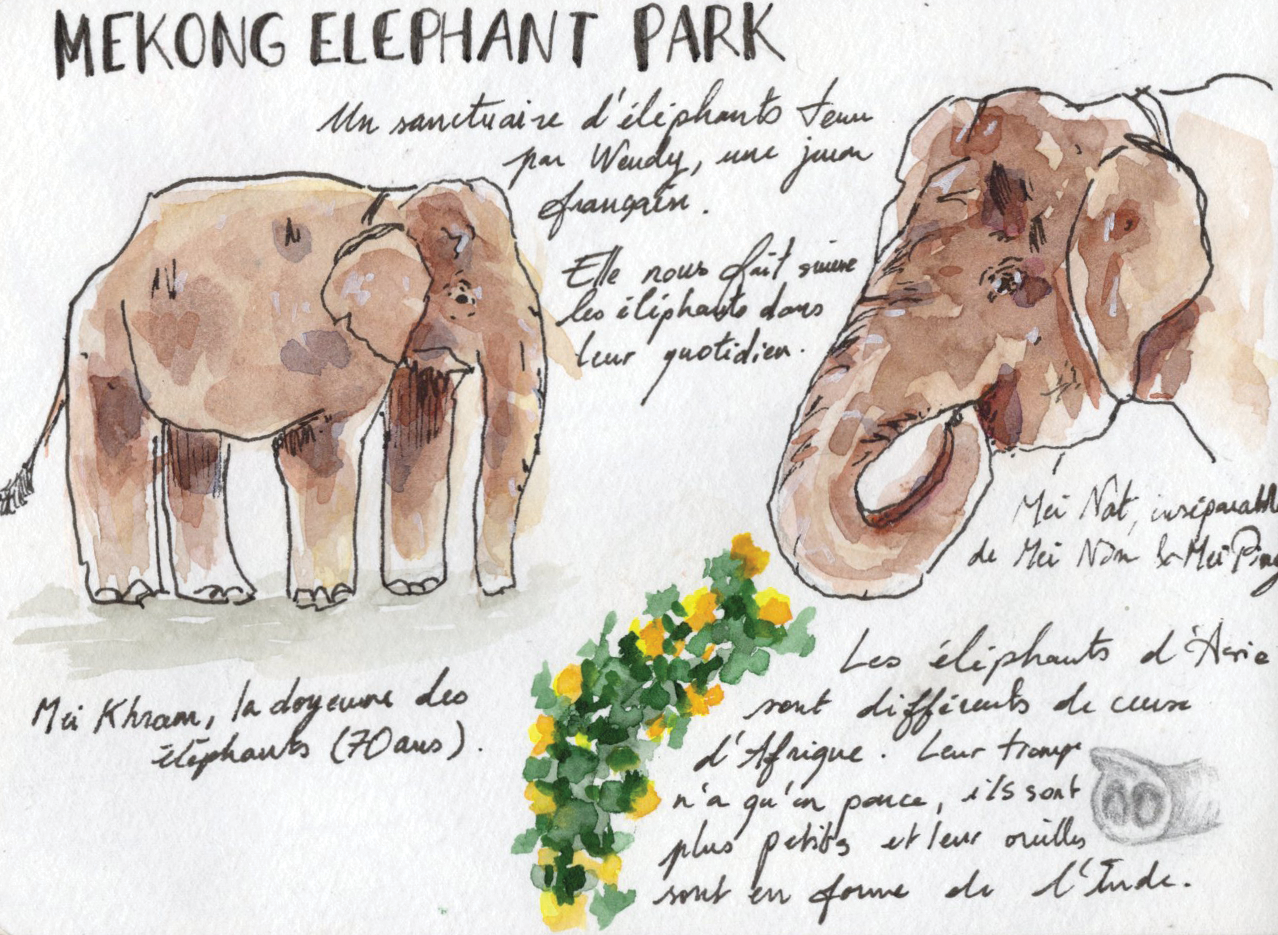 MEKONG ELEPHANT PARK
Un sanctuaire d'éléphants tenu
par Wendy, une jeune
française.
Elle nous fait suivre
les éléphants dans
leur quotidien.
Mei Nat, inséparable
de Mei Nón & Mei Ping
Mei Kham, la doyenne des
éléphants (70 ans).
Les éléphants d'Asie
sont différents de ceux
d'Afrique. Leur trompe
n'a qu'un pouce, ils sont
plus petits et leur oreilles
sont en forme de l'Inde.